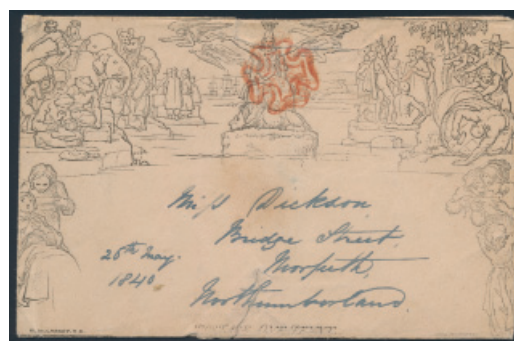 Miss Dickson
Bridge Street
Morpeth,
Northumberland.
26th May.
1840
W. MULREADY. R.A.